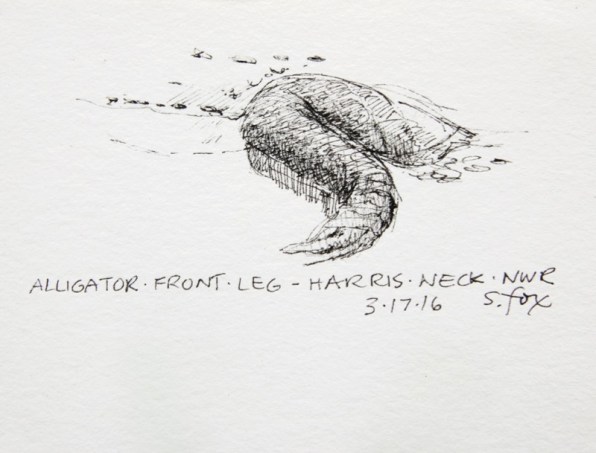 ALLIGATOR·FRONT·LEG - HARRIS·NECK·NWR
3·17·16 S. fox